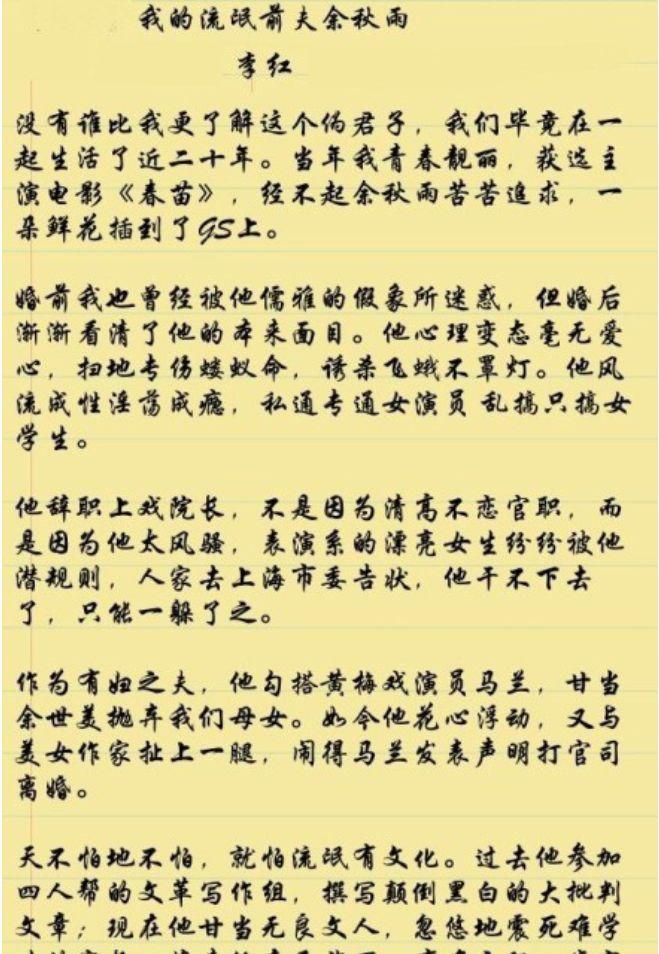 我的流氓前夫余秋雨
李红
没有谁比我更了解这个伪君子，我们毕竟在一
起生活了近二十年。当年我青春靓丽，获选主
演电影《春苗》，经不起余秋雨苦苦追求，一
朵鲜花插到了GS上。
婚前我也曾经被他儒雅的假象所迷惑，但婚后
渐渐看清了他的本来面目。他心理变态毫无爱
心，扫地专伤蝼蚁命，诱杀飞蛾不罩灯。他风
流成性淫荡成瘾，私通专通女演员 乱搞只搞女
学生。
他辞职上戏院长，不是因为清高不恋官职，而
是因为他太风骚，表演系的漂亮女生纷纷被他
潜规则，人家去上海市委告状，他干不下去
了，只能一躲了之。
作为有妇之夫，他勾搭黄梅戏演员马兰，甘当
余世美抛弃我们母女。如今他花心浮动，又与
美女作家扯上一腿，闹得马兰发表声明打官司
离婚。
天不怕地不怕，就怕流氓有文化。过去他参加
四人帮的文革写作组，撰写颠倒黑白的大批判
文章；现在他甘当无良文人，忽悠地震死难学